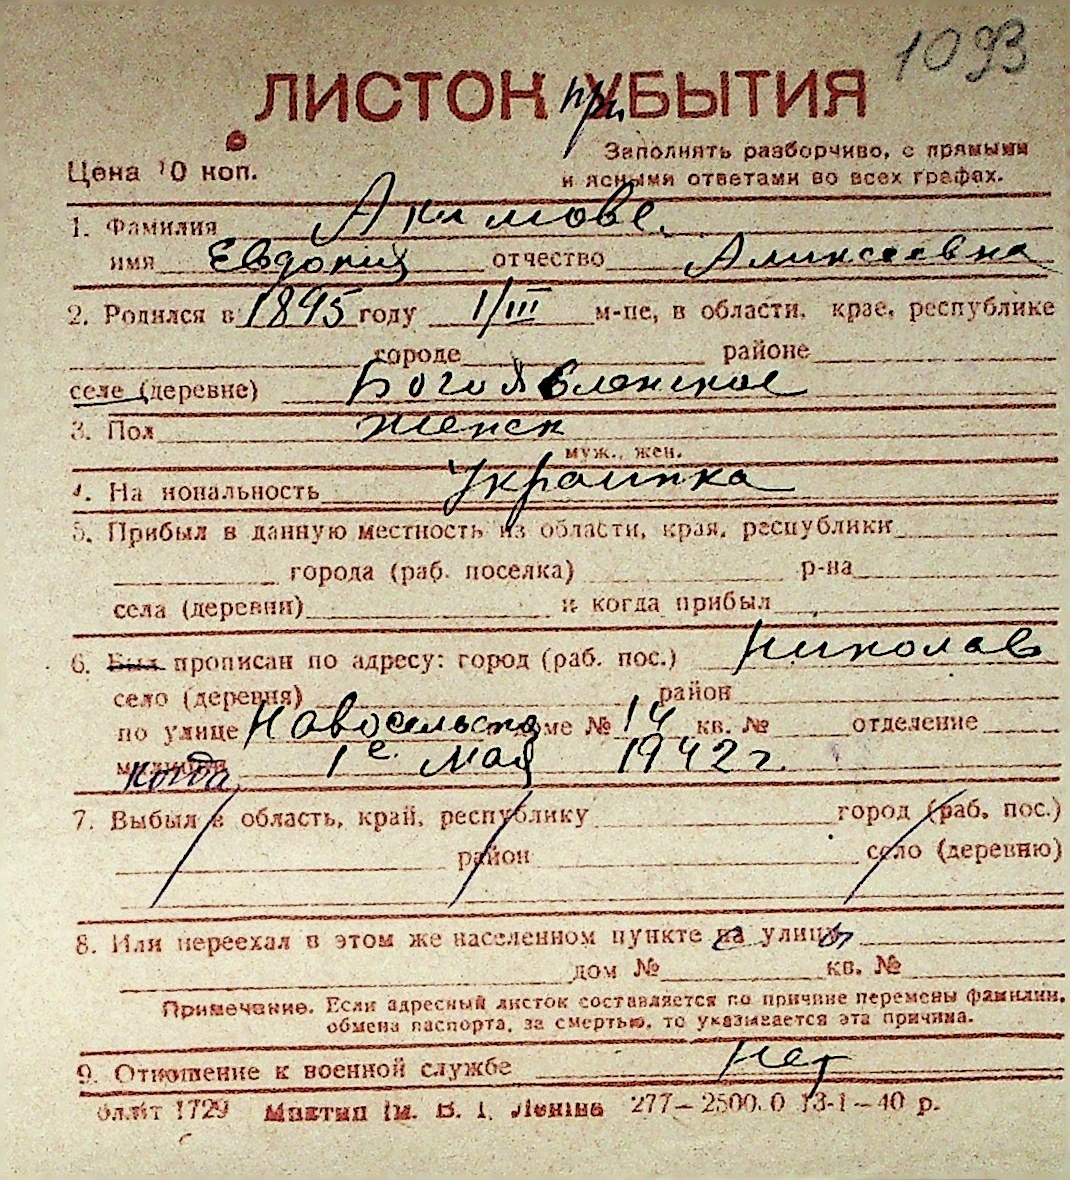 1093
ЛИСТОК при УБЫТИЯ
Цена 10 коп.
Заполнять разборчиво, с прямыми
и ясными ответами во всех графах.
1. Фамилия Акимова
имя Евдокия отчество Аликсеевна
2. Родился в 1895 году 1/III м-це, в области, крае, республике
городе районе
селе (деревне) Богоявленское
3. Пол женск
муж., жен.
4. На иональность Украинка
5. Прибыл в данную местность из области, края, республики
города (раб. поселка) р-на
села (деревни) и когда прибыл
6. Был прописан по адресу: город (раб. пос.) Николаев
село (деревня) район
по улице Новосельска доме № 14 кв. № отделение
милиции когда 1е мая 1942 г.
7. Выбыл в область, край, республику город (раб. пос.)
район село (деревню)
8. Или переехал в этом же населенном пункте с улицы
дом № кв. №
Примечание. Если адресный листок составляется по причине перемены фамилии,
обмена паспорта, за смертью, то указывается эта причина.
9. Отношение к военной службе Нет
1729 ім. В. І. Леніна 277—2500.0 13-1—40 р.